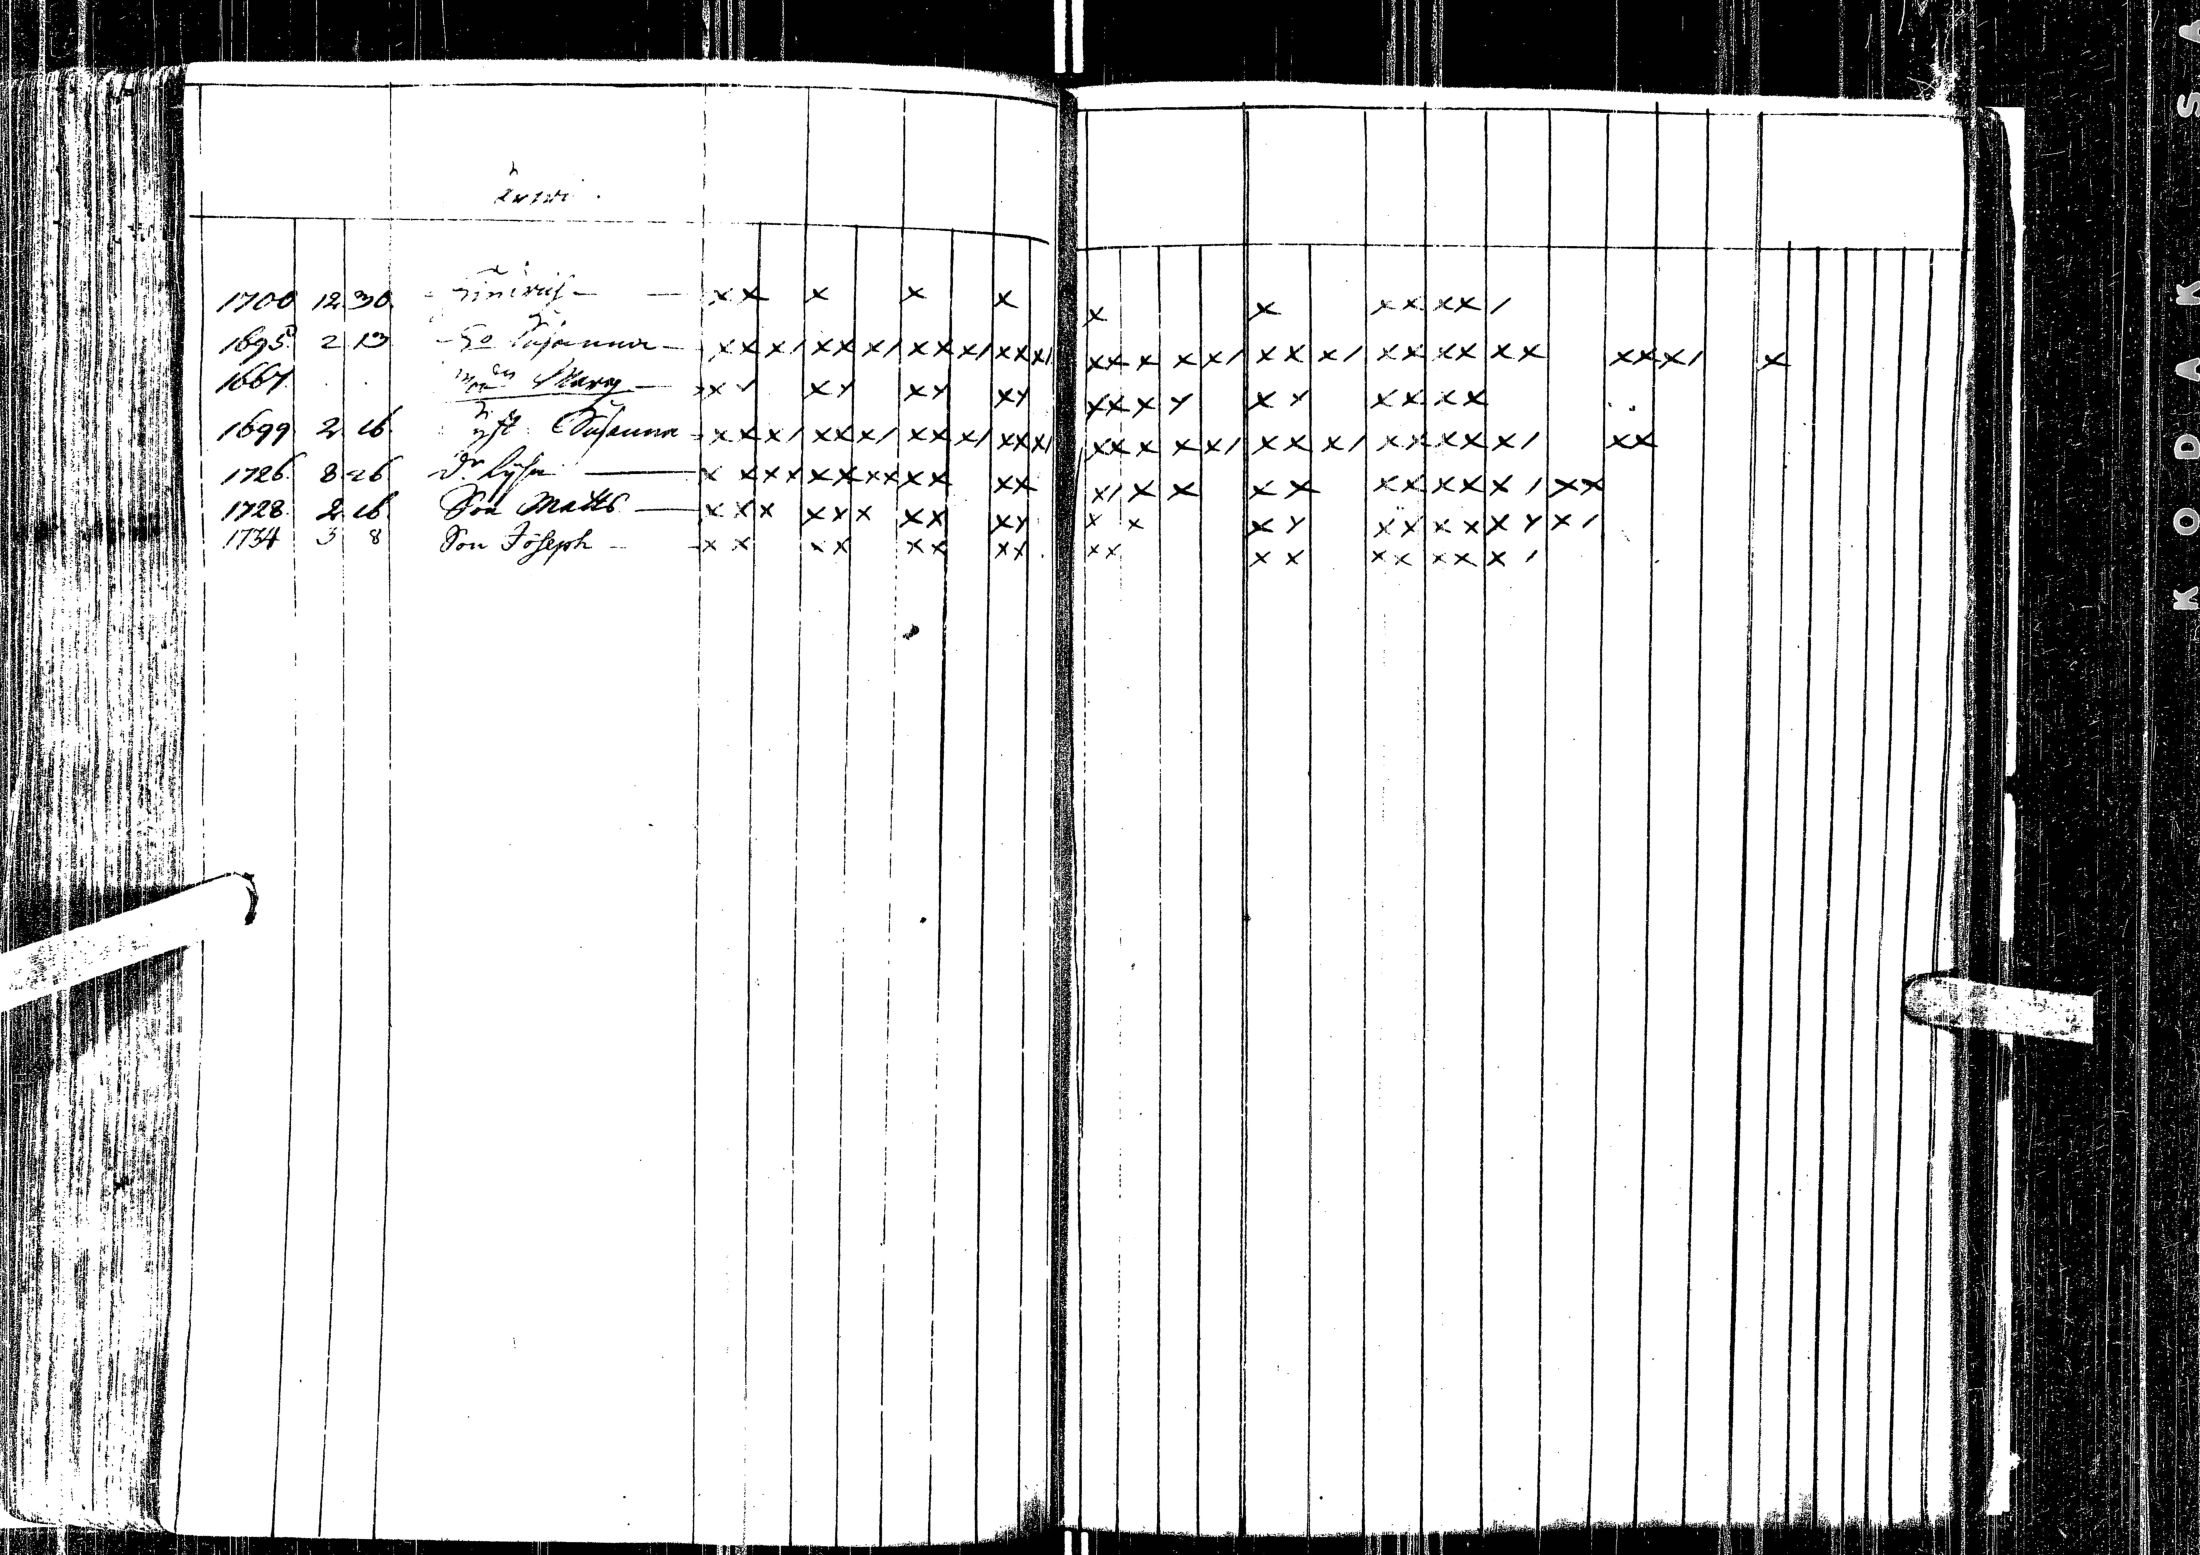 1700 12 30 Hinrich — x x x x x x x x x x x /
1695 2 13 Ho Susanna — x x x / x x x / x x x / x x x / x x x x x / x x x / x x x x x x x x x / x
1667 Mary — x x y x y x y x y x x x y x y x x x x
1699 2 16 Susanna x x x / x x x / x x x / x x x / x x x x x / x x x / x x x x x x / x x
1726 8 26 Dr Lisa — x x x x x x x x x x x x x / x x x x x x x x x / x x
1728 2 16 Son Matts — x x x x x x x x x y x x x y x x x x x y x /
1734 3 8 Son Joseph — x x x x x x x x x x x x x x x x x /
KODAK SA